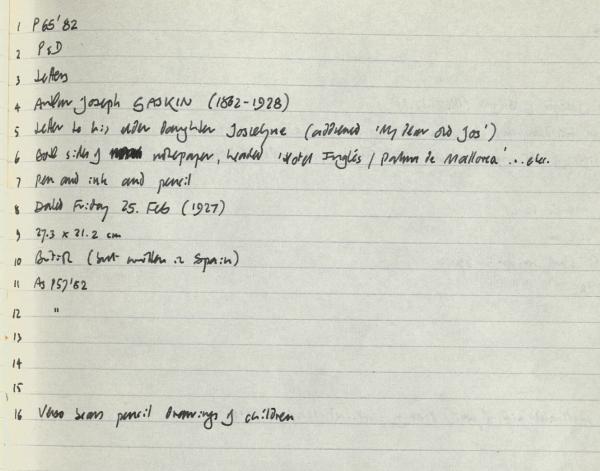 1 P65'82
2 P&D
3 Letters
4 Arthur Joseph GASKIN (1862-1928)
5 Letter to his elder daughter Joscelyne (addressed 'My Dear Old Jos')
6 Both sides of notepaper, headed 'Hotel Inglés / Palma de Mallorca'...etc.
7 Pen and ink and pencil
8 Dated Friday 25. Feb (1927)
9 27.3 x 21.2 cm
10 British (but written in Spain)
11 As P57'82
12 "
13
14
15
16 Verso bears pencil drawings of children